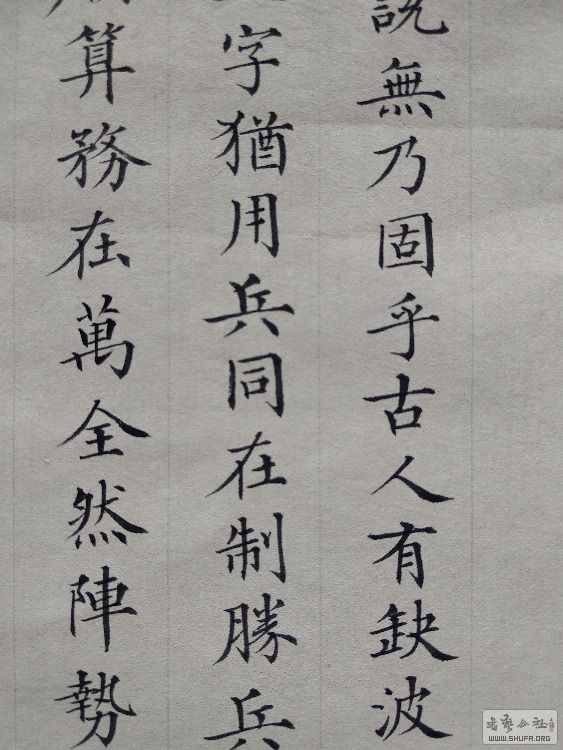 說無乃固乎古人有缺波
字猶用兵同在制勝兵
算務在萬全然陣勢
書藝公社
WWW.SHUFA.ORG